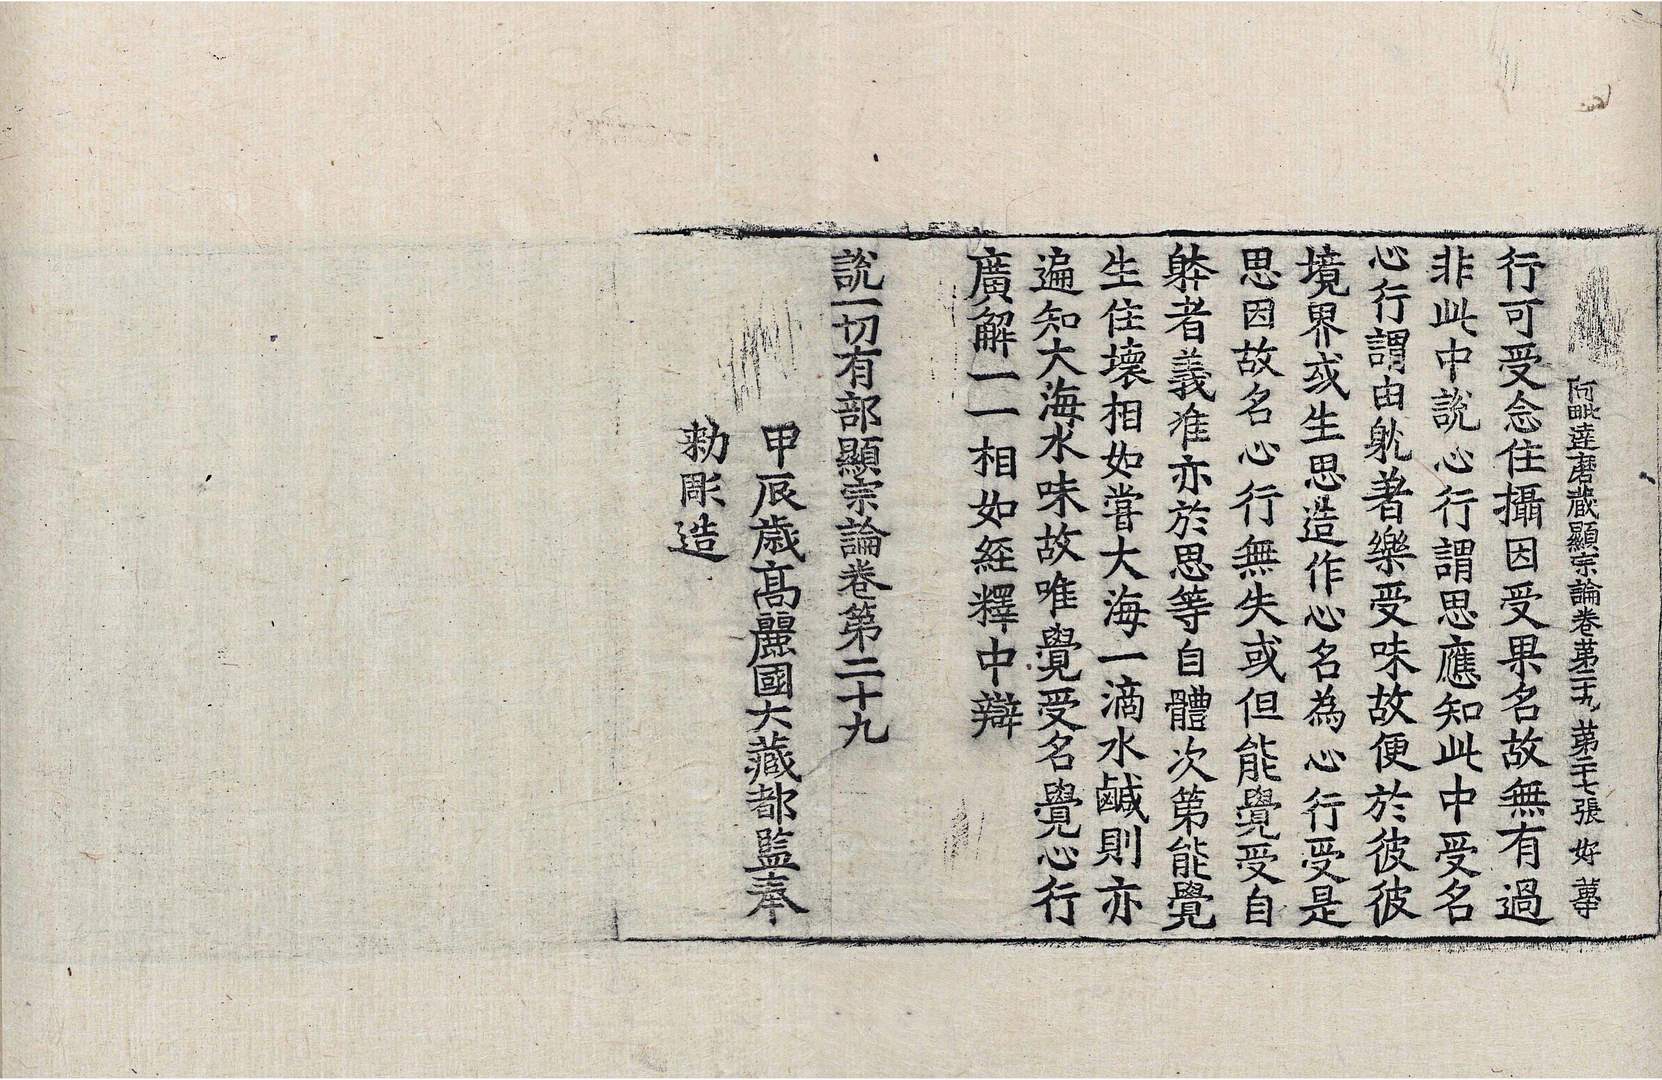 阿毗達磨藏顯宗論卷第二十九 第二十七張 好
行可受念住攝因受果名故無有過
非此中說心行謂思應知此中受名
心行謂由躭著樂受味故便於彼彼
境界或生思造作心名為心行受是
思因故名心行無失或但能覺受自
躰者義准亦於思等自體次第能覺
生住壞相如嘗大海一滴水鹹則亦
遍知大海水味故唯覺受名覺心行
廣解一一相如經釋中辯
說一切有部顯宗論卷第二十九
甲辰歲高麗國大藏都監奉
勑彫造